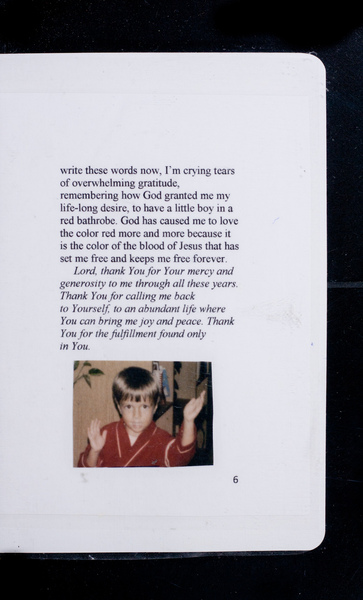 write these words now, I'm crying tears
of overwhelming gratitude,
remembering how God granted me my
life-long desire, to have a little boy in a
red bathrobe. God has caused me to love
the color red more and more because it
is the color of the blood of Jesus that has
set me free and keeps me free forever.
Lord, thank You for Your mercy and
generosity to me through all these years.
Thank You for calling me back
to Yourself, to an abundant life where
You can bring me joy and peace. Thank
You for the fulfillment found only
in You.
6